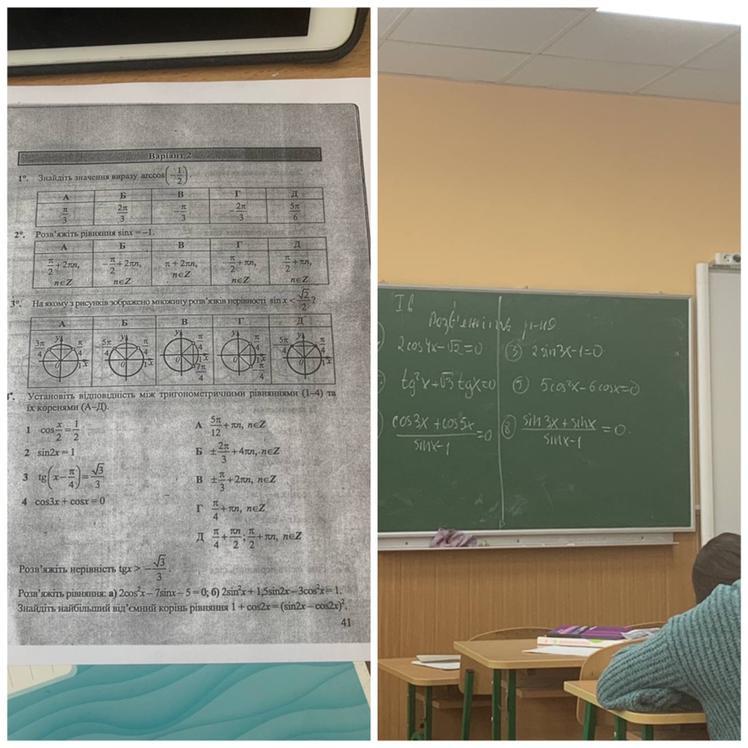 Варіант 2
1°. Знайдіть значення виразу arccos(-1/2)
А Б В Г Д
π/3 2π/3 -π/3 -2π/3 5π/6
2°. Розв'яжіть рівняння sinx = -1.
А Б В Г Д
π/2 + 2πn, n∈Z -π/2 + 2πn, n∈Z π + 2πn, n∈Z -π/2 + πn, n∈Z π/2 + πn, n∈Z
3°. На якому з рисунків зображено множину розв'язків нерівності sin x < √2/2?
А Б В Г Д
Установіть відповідність між тригонометричними рівняннями (1–4) та
їх коренями (А–Д).
1 cos x/2 = 1/2
2 sin2x = 1
3 tg(x - π/4) = √3/3
4 cos3x + cosx = 0
А 5π/12 + πn, n∈Z
Б ± 2π/3 + 4πn, n∈Z
В ± π/3 + 2πn, n∈Z
Г π/4 + πn, n∈Z
Д π/4 + πn/2; π/2 + πn, n∈Z
Розв'яжіть нерівність tgx > -√3/3.
Розв'яжіть рівняння: а) 2cos²x – 7sinx – 5 = 0; б) 2sin²x + 1,5sin2x – 3cos²x = 1.
Знайдіть найбільший від'ємний корінь рівняння 1 + cos2x = (sin2x – cos2x)².
41
І в
2cos4x - √2 = 0
tg²x + √3 tgx = 0
(cos3x + cos5x)/(sinx - 1) = 0
2sin3x - 1 = 0
5cos²x - 6cosx = 0
(sin3x + sinx)/(sinx - 1) = 0.